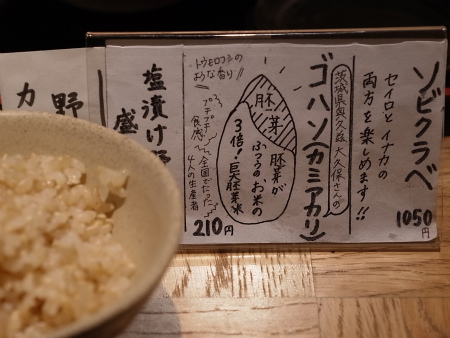 ソビクラベ
セイロと イナカの
両方を楽しめます!!
1050円
茨城県奥久慈 大久保さんの
ゴハン(カミアカリ)
胚芽
胚芽が
ふつうのお米の
3倍!巨大胚芽米
210円
トウモロコシの
ような香り!!
プチプチ食感
全国でたった
4人の生産者
塩漬け野
盛
野
カ